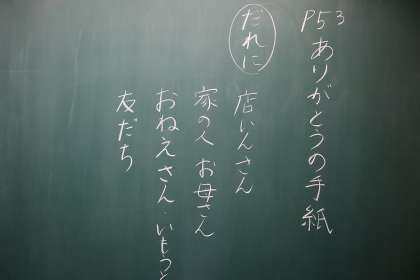 P53 ありがとうの手紙
だれに
店いんさん
家の人 お母さん
おねえさん・いもうと
友だち